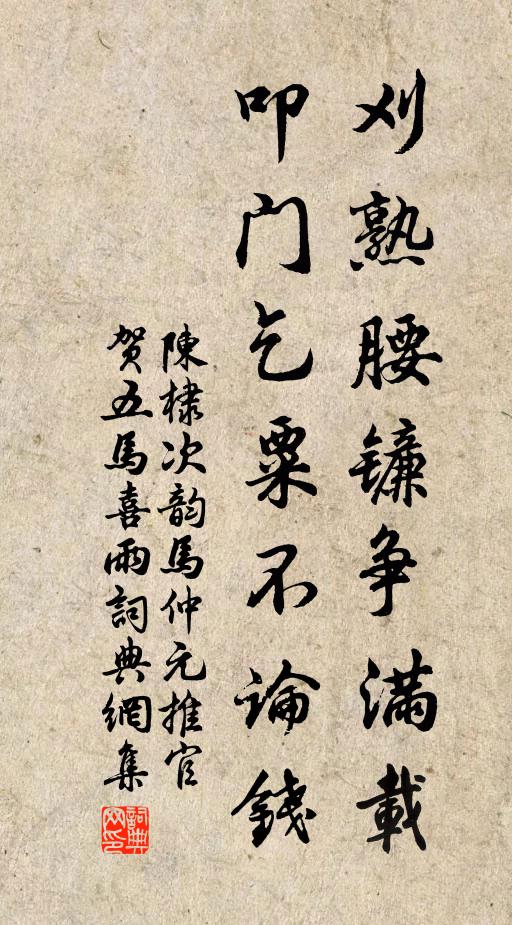 刈熟腰鐮争滿載
叩门乞粟不論錢
陳棣次韵馬仲元推官
贺五馬喜雨詞典網集
詞典网印